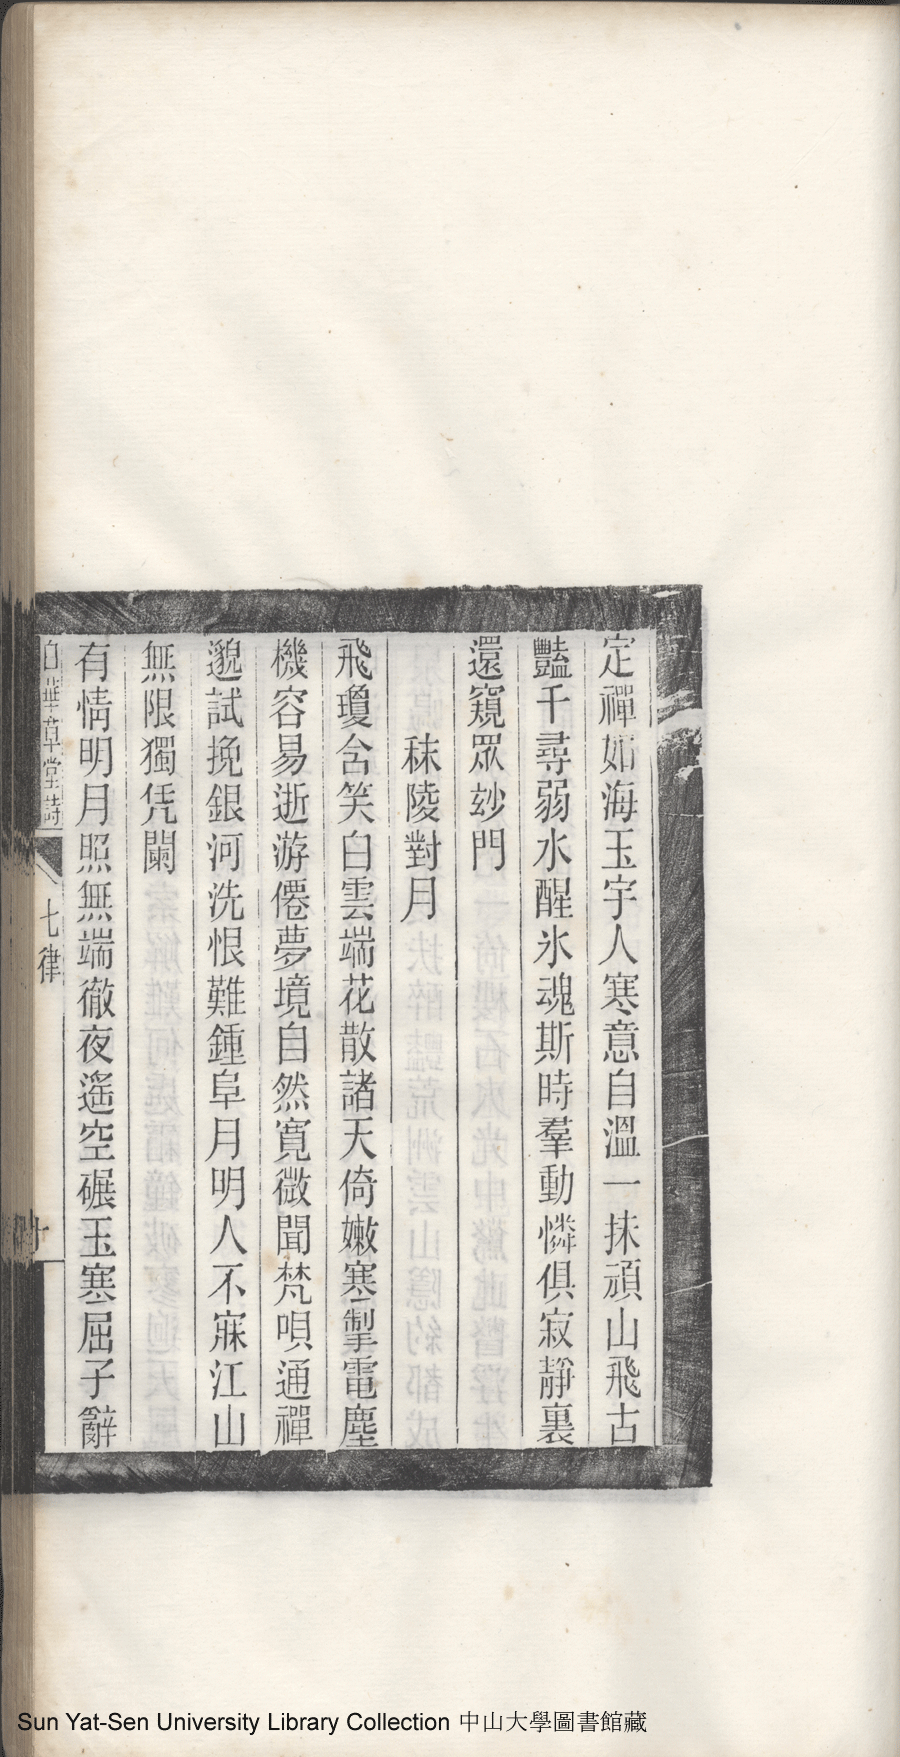 定禪如海玉宇人寒意自溫一抹頑山飛古
豔千尋弱水醒氷魂斯時羣動憐俱寂靜裏
還窺眾玅門
秣陵對月
飛瓊含笑白雲端花散諸天倚嫩寒掣電塵
機容易逝游僊夢境自然寬微聞梵唄通禪
邈試挽銀河洗恨難鍾阜月明人不寐江山
無限獨凭闌
有情明月照無端徹夜遙空碾玉寒屈子辭
白華草堂詩 七律 十
Sun Yat-Sen University Library Collection 中山大學圖書館藏